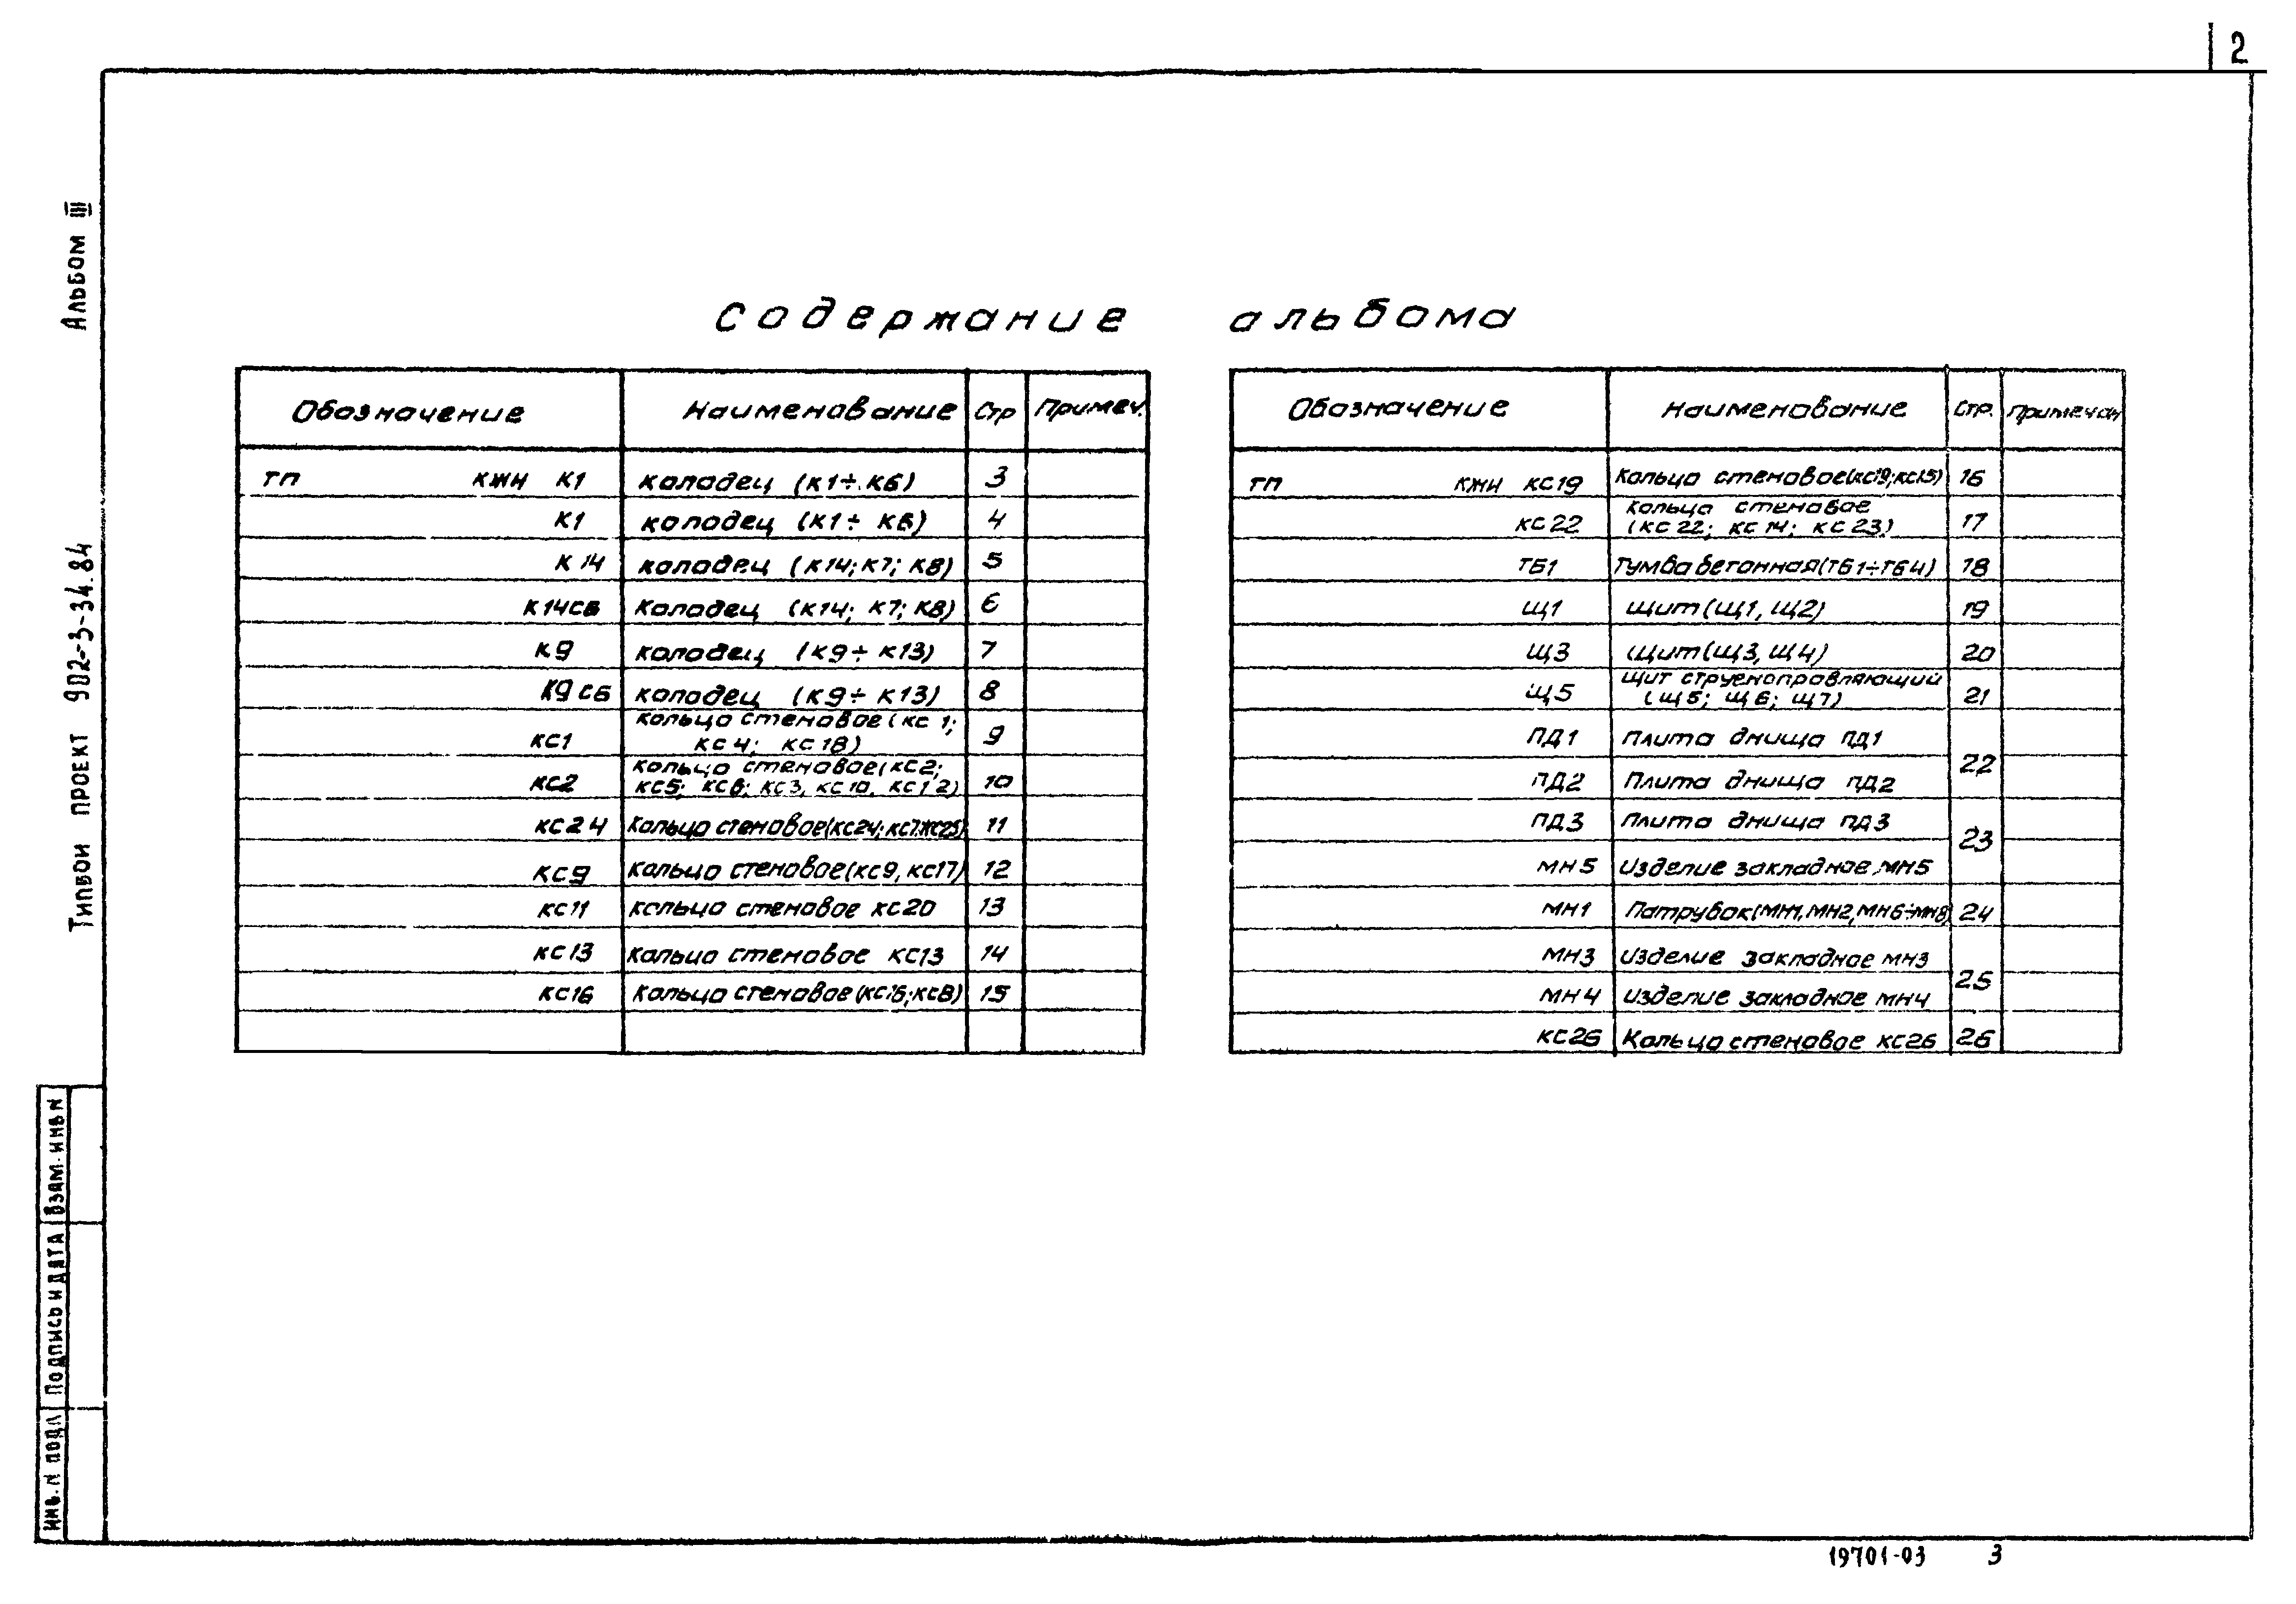 2
Альбом III
Типвой проект 902-3-34.84
Содержание альбома
Обозначение Наименование Стр Примеч.
ТП КЖИ К1 Колодец (К1÷К6) 3
К1 Колодец (К1÷К6) 4
К14 Колодец (К14; К7; К8) 5
К14СБ Колодец (К14; К7; К8) 6
К9 Колодец (К9÷К13) 7
К9СБ Колодец (К9÷К13) 8
Кольцо стеновое (КС1;
КС1 КС4; КС18) 9
Кольцо стеновое (КС2;
КС2 КС5; КС6; КС3, КС10, КС12) 10
КС24 Кольцо стеновое (КС24; КС7; КС25) 11
КС9 Кольцо стеновое (КС9, КС17) 12
КС11 Кольцо стеновое КС20 13
КС13 Кольцо стеновое КС13 14
КС16 Кольцо стеновое (КС16; КС8) 15
Обозначение Наименование Стр. Примечан
ТП КЖИ КС19 Кольцо стеновое (КС19; КС15) 16
Кольцо стеновое
КС22 (КС22; КС14; КС23) 17
ТБ1 Тумба бетонная (ТБ1÷ТБ4) 18
Щ1 Щит (Щ1, Щ2) 19
Щ3 Щит (Щ3, Щ4) 20
Щит струенаправляющий
Щ5 (Щ5; Щ6; Щ7) 21
ПД1 Плита днища ПД1
22
ПД2 Плита днища ПД2
ПД3 Плита днища ПД3
23
МН5 Изделие закладное МН5
МН1 Патрубок (МН1, МН2, МН6÷МН8) 24
МН3 Изделие закладное МН3
25
МН4 Изделие закладное МН4
КС26 Кольцо стеновое КС26 26
Инв. N подл Подпись и дата Взам. инв N
19701-03 3